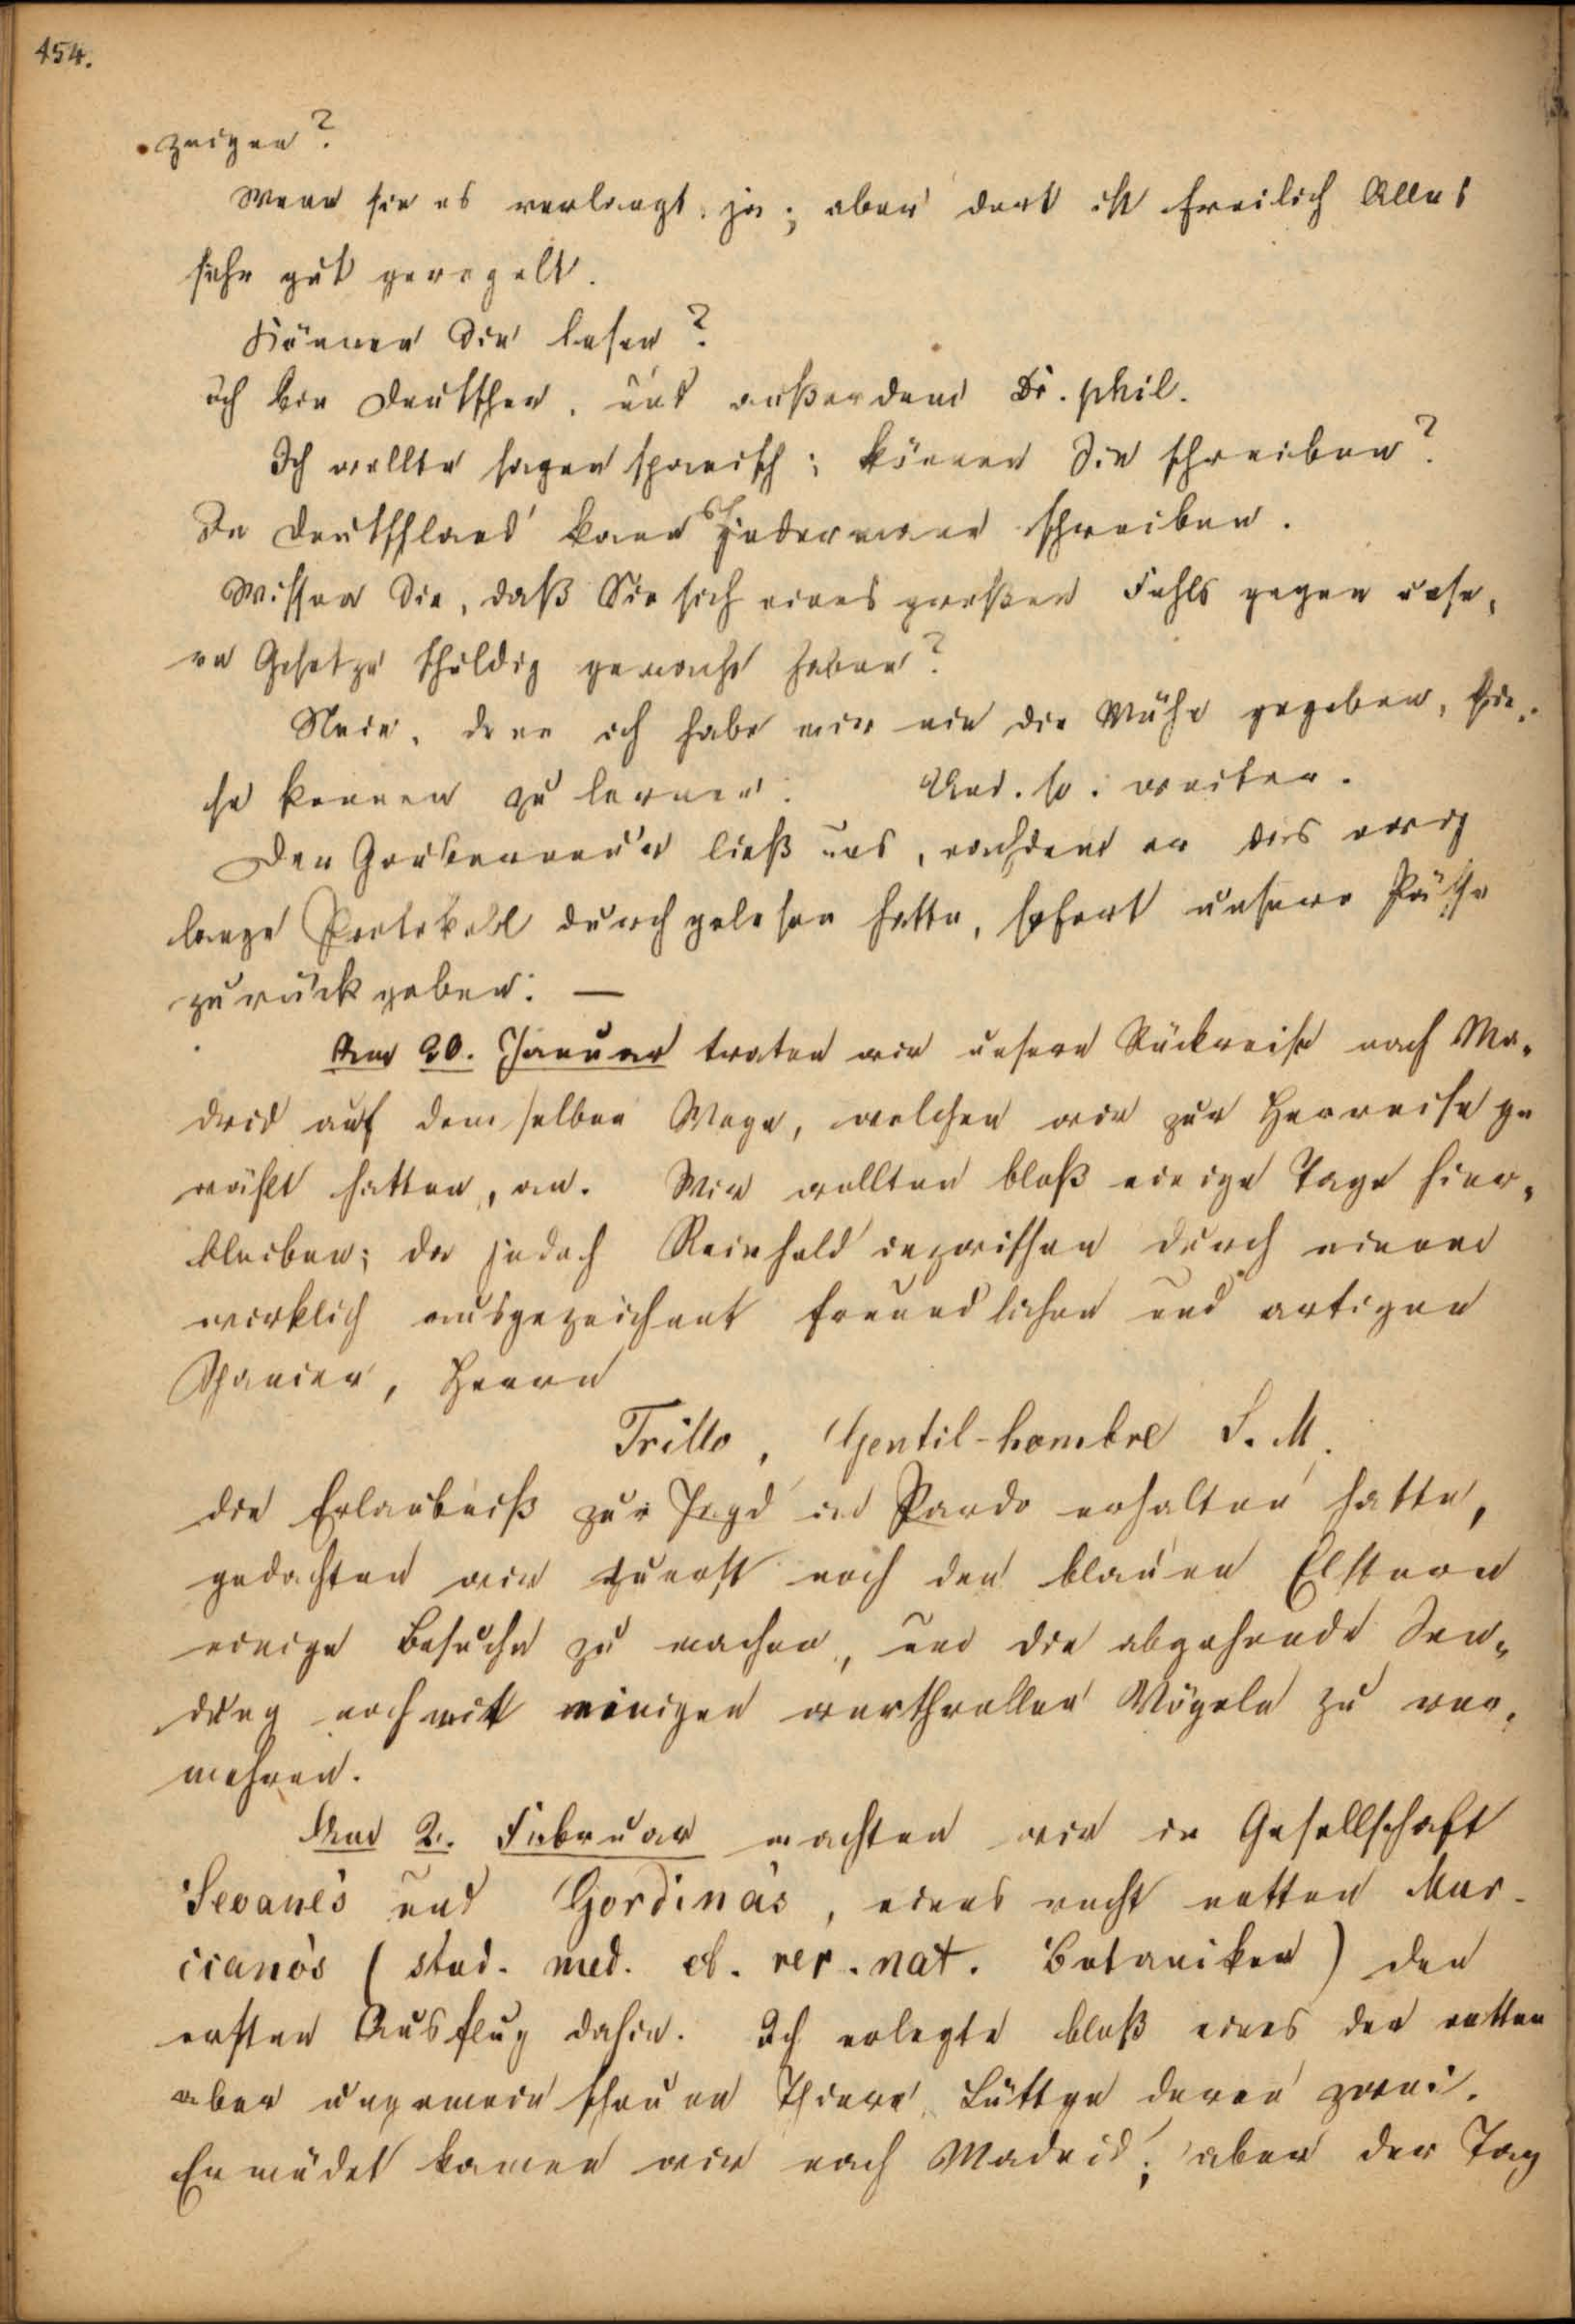 454.
zeigen?
Wenn sie es verlangt, ja; aber dort ist freilich Alles
sehr gut geregelt.
Können Sie lesen?
ich bin Deutscher, und außerdem Dr. phil.
Ich wollte sagen spanisch; können Sie schreiben?
In Deutschland kann Jedermann schreiben.
Wissen Sie, daß Sie sich eines großen Fehls gegen unse-
re Gesetze schuldig gemacht haben?
Nein, denn ich habe mir nie die Mühe gegeben, die-
se kennen zu lernen. Und. so. weiter.
Der Gouverneur ließ uns, nachdem er das ewig
lange Protokoll durchgelesen hatte, sofort unsere Päße
zurückgeben. —
Am 20. Januar traten wir unsere Rückreise nach Ma-
drid auf demselben Wege, welchen wir zur Herreise ge
wählt hatten, an. Wir wollten bloß einige Tage hier-
bleiben; da jedoch Reinhold inzwischen durch einen
wirklich ausgezeichnet freundlichen und artigen
Spanier, Herrn
Trillo, Gentil-hombre S. M.
die Erlaubniß zur Jagd in Pardo erhalten hatte,
gedachten wir zuerst noch den blauen Elstern
einige Besuche zu machen, um die abgehende Sen-
dung noch mit einigen werthvollen Vögeln zu ver-
mehren.
Am 2. Februar machten wir in Gesellschaft
Seoane's und Gordina's, eines recht netten Mur-
ciano's (stud. med. et. rer. nat. Botaniker) den
ersten Ausflug dahin. Ich erlegte bloß eines der netten
aber ungemein scheuen Thiere, Lüttge deren zwei.
Ermüdet kamen wir nach Madrid; aber der Tag